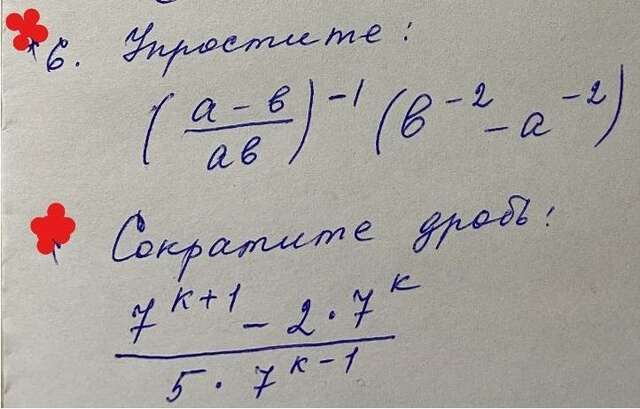 6. Упростите:
(a - b / ab)^-1 (b^-2 - a^-2)
Сократите дробь:
7^k+1 - 2 · 7^k / 5 · 7^k-1